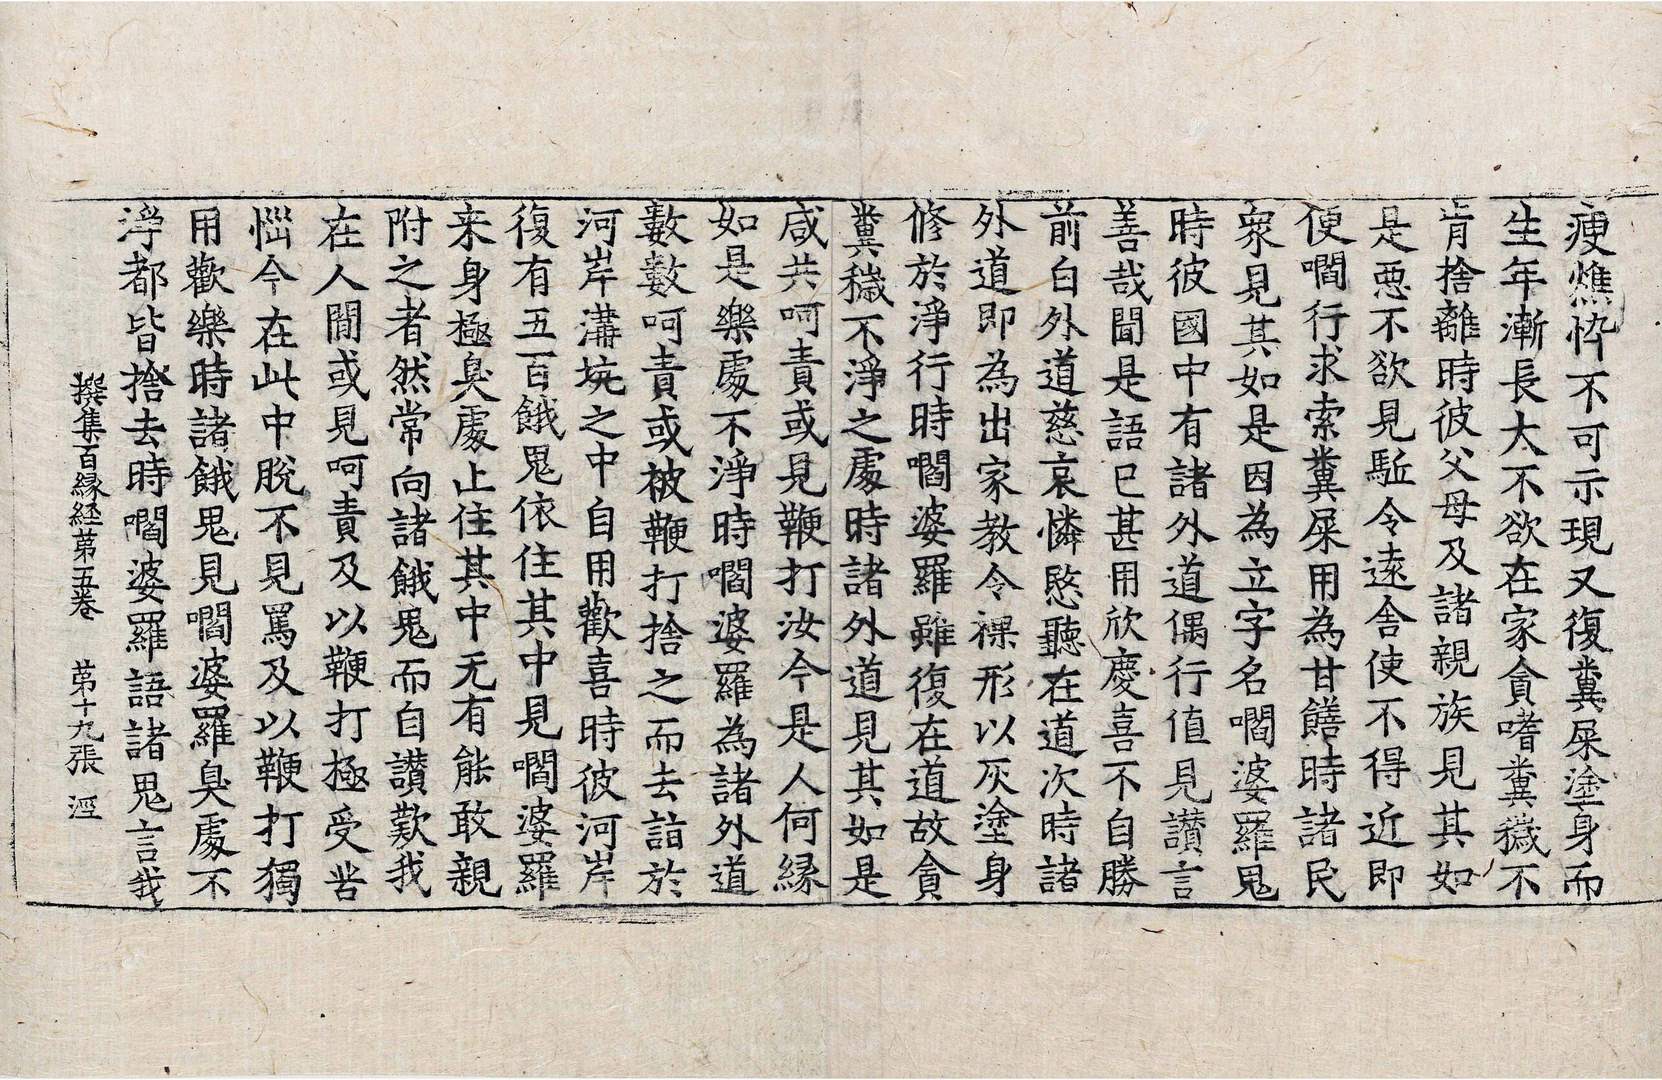 瘦燋忰不可示現又復糞屎塗身而
生年漸長大不欲在家貪嗜糞穢不
肯捨離時彼父母及諸親族見其如
是惡不欲見駈令遠舍使不得近即
便嚪行求索糞屎用為甘饍時諸民
衆見其如是因為立字名嚪婆羅鬼
時彼國中有諸外道偶行值見讃言
善哉聞是語已甚用欣慶喜不自勝
前白外道慈哀憐愍聽在道次時諸
外道即為出家教令裸形以灰塗身
修於淨行時嚪婆羅雖復在道故貪
糞穢不淨之處時諸外道見其如是
咸共呵責或見鞭打汝今是人何縁
如是樂處不淨時嚪婆羅為諸外道
數數呵責或被鞭打捨之而去詣於
河岸溝坑之中自用歡喜時彼河岸
復有五百餓鬼依住其中見嚪婆羅
来身極臭處止住其中无有能敢親
附之者然常向諸餓鬼而自讃歎我
在人間或見呵責及以鞭打極受苦
惱今在此中脫不見罵及以鞭打獨
用歡樂時諸餓鬼見嚪婆羅臭處不
淨都皆捨去時嚪婆羅語諸鬼言我
撰集百縁経第五卷　第十九張　涇